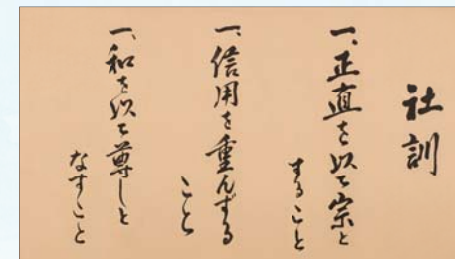 社訓
一、正直を以て宗と
すること
一、信用を重んずる
こと
一、和を以て尊しと
なすこと